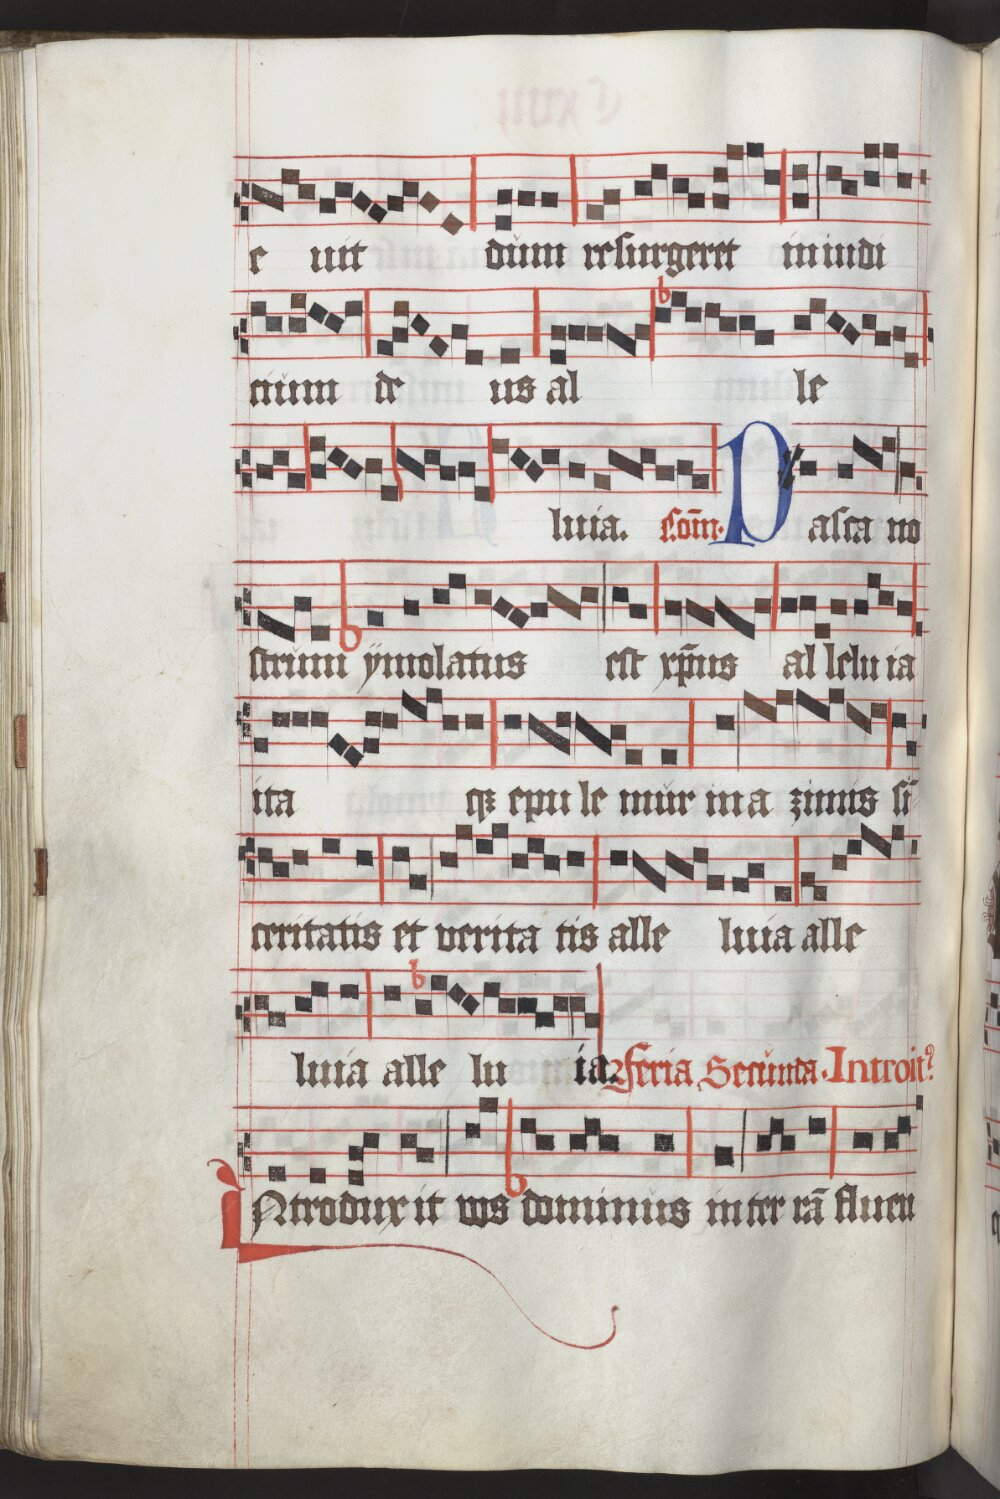 e uit dum resurgeret in iudi
cium de us al le
luia. Com̄. Pasca no
strum ẏmolatus est xp̄us al lelu ia
ita qꝫ epu le mur in a zimis si
ceritatis et verita tis alle luia alle
luia alle lu ia. Feria Secunda. Introitꝰ
Introdux it vos dominus in ter rā fluen